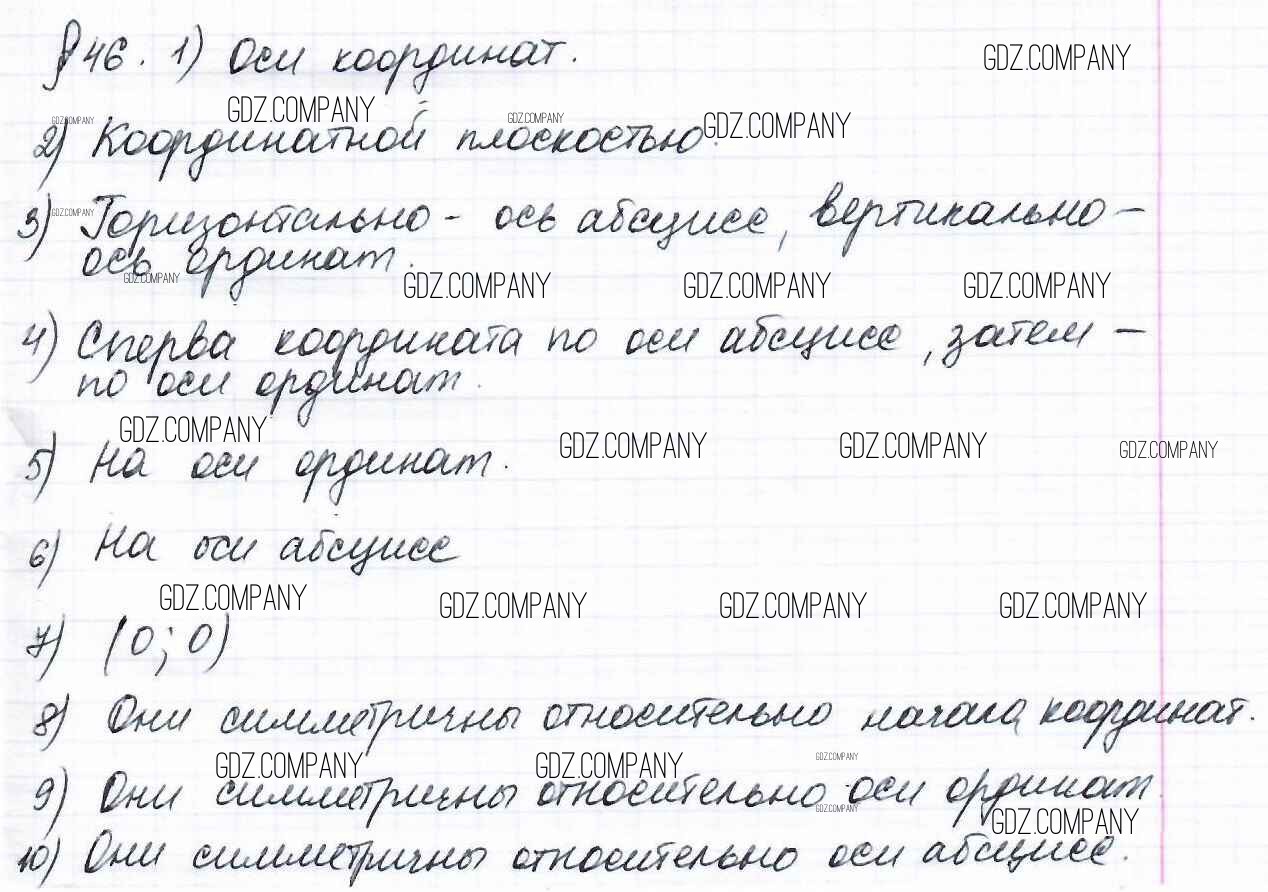 § 46. 1) Оси координат.
GDZ.COMPANY
GDZ.COMPANY
GDZ.COMPANY GDZ.COMPANY GDZ.COMPANY
2) Координатной плоскостью.
3) Горизонтально - ось абсцисс, вертикально -
GDZ.COMPANY
ось ординат.
GDZ.COMPANY GDZ.COMPANY GDZ.COMPANY GDZ.COMPANY
4) Сперва координата по оси абсцисс, затем -
по оси ординат.
GDZ.COMPANY GDZ.COMPANY GDZ.COMPANY GDZ.COMPANY
5) На оси ординат.
6) На оси абсцисс
GDZ.COMPANY GDZ.COMPANY GDZ.COMPANY GDZ.COMPANY
7) (0; 0)
8) Они симметричны относительно начала координат.
GDZ.COMPANY GDZ.COMPANY GDZ.COMPANY
9) Они симметричны относительно оси ординат.
GDZ.COMPANY GDZ.COMPANY
10) Они симметричны относительно оси абсцисс.